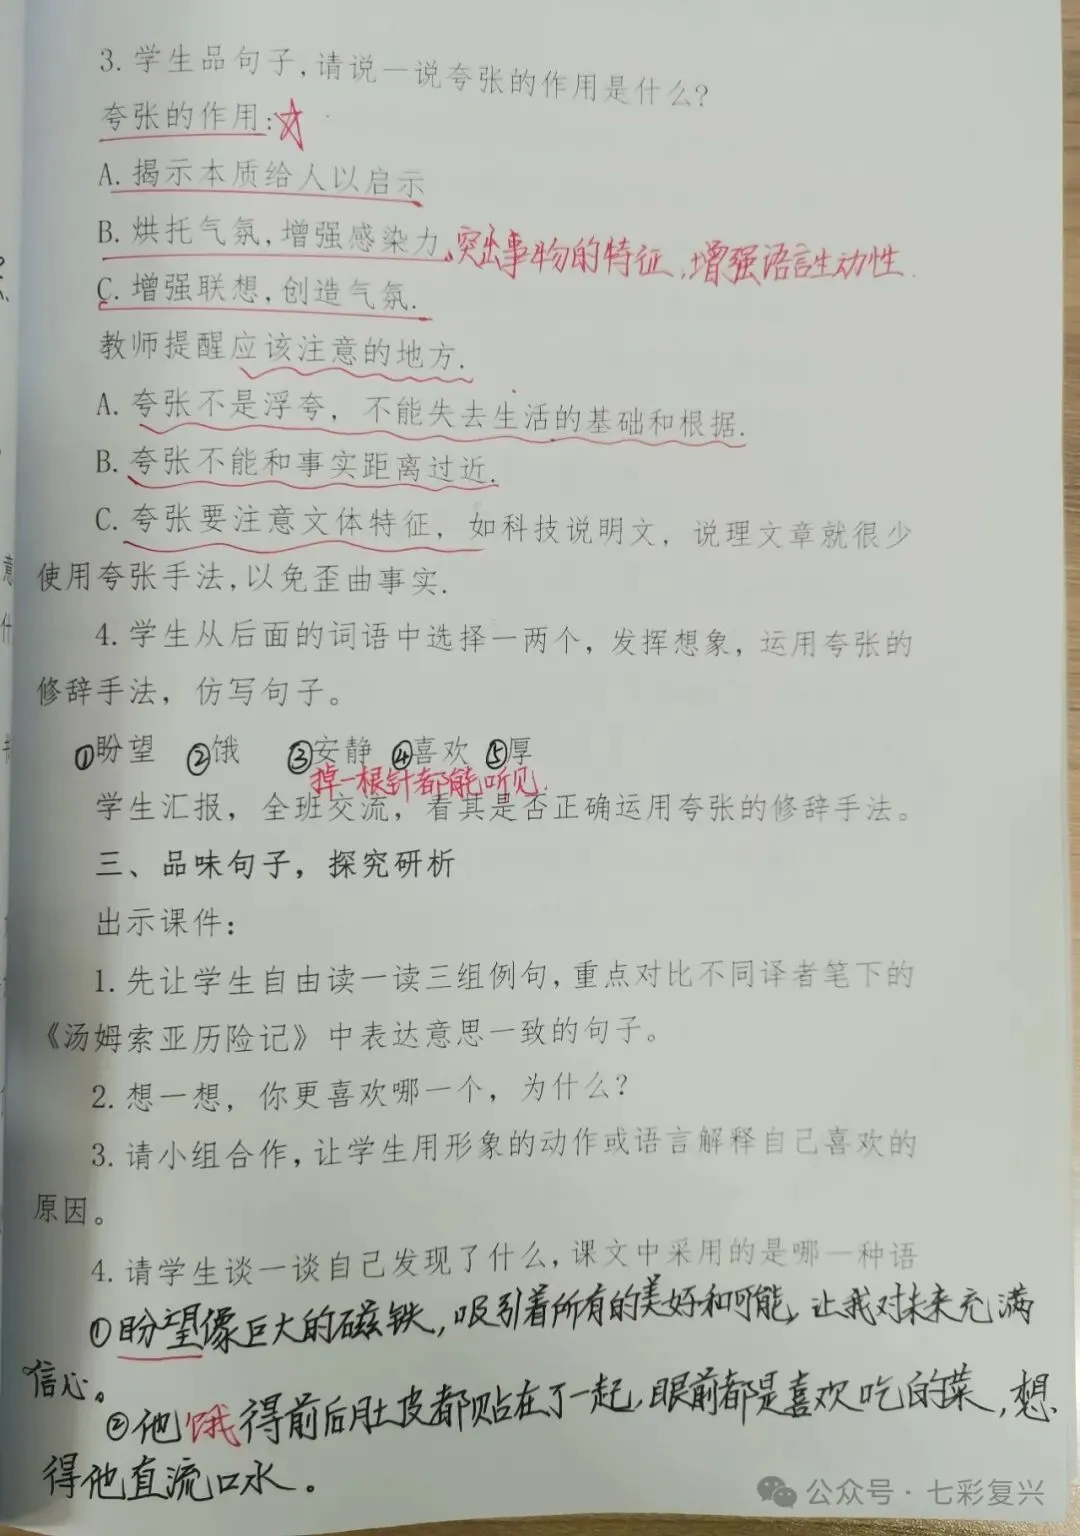 3. 学生品句子,请说一说夸张的作用是什么?
夸张的作用:☆
A. 揭示本质给人以启示
B. 烘托气氛,增强感染力,突出事物的特征,增强语言生动性.
C. 增强联想,创造气氛.
教师提醒应该注意的地方.
A. 夸张不是浮夸，不能失去生活的基础和根据.
B. 夸张不能和事实距离过近.
C. 夸张要注意文体特征，如科技说明文，说理文章就很少
使用夸张手法,以免歪曲事实.
4. 学生从后面的词语中选择一两个，发挥想象，运用夸张的
修辞手法，仿写句子。
①盼望 ②饿 ③安静 ④喜欢 ⑤厚
掉一根针都能听见.
学生汇报，全班交流，看其是否正确运用夸张的修辞手法。
三、品味句子，探究研析
出示课件：
1. 先让学生自由读一读三组例句,重点对比不同译者笔下的
《汤姆索亚历险记》中表达意思一致的句子。
2. 想一想，你更喜欢哪一个，为什么?
3. 请小组合作,让学生用形象的动作或语言解释自己喜欢的
原因。
4. 请学生谈一谈自己发现了什么,课文中采用的是哪一种语
①盼望像巨大的磁铁,吸引着所有的美好和可能,让我对未来充满
信心。
②他饿得前后肚皮都贴在了一起,眼前都是喜欢吃的菜,想
得他直流口水。
公众号·七彩复兴